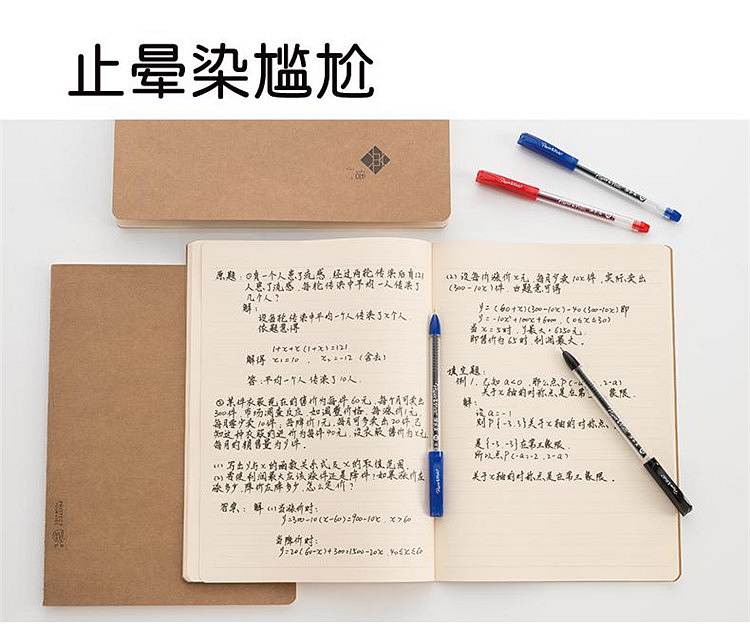 止晕染尴尬
原题：①有一个人患了流感，经过两轮传染后有121
人患了流感，每轮传染中平均一人传染了
几个人？
解：
设每轮传染中平均一个人传染了x个人
依题意得
1+x+x(1+x)=121
解得 x₁=10 ， x₂=-12 (舍去)
答：平均一个人传染了10人.
②某件衣服现在的售价为每件60元，每个月可卖出
300件，市场调查反应：如调整价格，每涨价1元，
每月要少卖10件；每降价1元，每月可多卖出20件已
知这种衣服的进价为每件40元，设衣服售价为x元
每月的销售量为y件.
(1)写出y与x的函数关系式及x的取值范围.
(2)若使利润最大应该涨价还是降价？如果涨价应
涨多少，降价应降多少，怎么定价？
答案：解 (1)当涨价时：
y=300-10(x-60)=900-10x，x>60
当降价时：
y=20(60-x)+300=1500-20x，40≤x≤60
(2)设每价涨价x元，每月少卖10x件，实际卖出
(300-10x)件，由题意可得
y=(60+x)(300-10x)-40(300-10x)即
y=-10x²+100x+6000，(0≤x≤30)
当x=5时，y最大=6250元.
即售价为65时，利润最大.
填空题：
例1.已知a<0，那么点P(-a
2-a)
关于x轴的对称点是在第
象限.
解：
设a=-1
则P(-3,3)关于x轴的对称点
是(-3,-3)在第三象限
所以点P(-a²-2，2-a)
关于x轴的对称点是在第三象限.